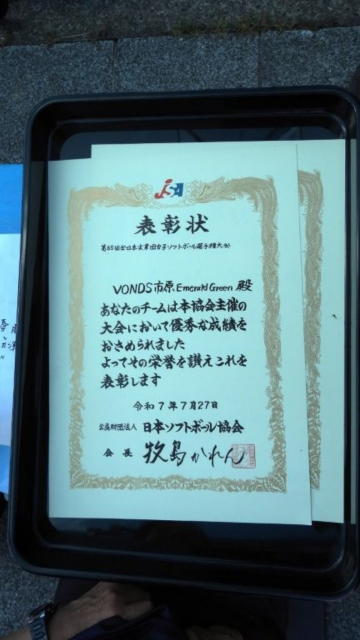 JSA
表彰状
第65回全日本実業団女子ソフトボール選手権大会
VONDS市原 Emerald Green 殿
あなたのチームは本協会主催の
大会において優秀な成績を
おさめられました
よってその栄誉を讃えこれを
表彰します
令和7年7月27日
公益財団法人 日本ソフトボール協会
会長 牧島かれん